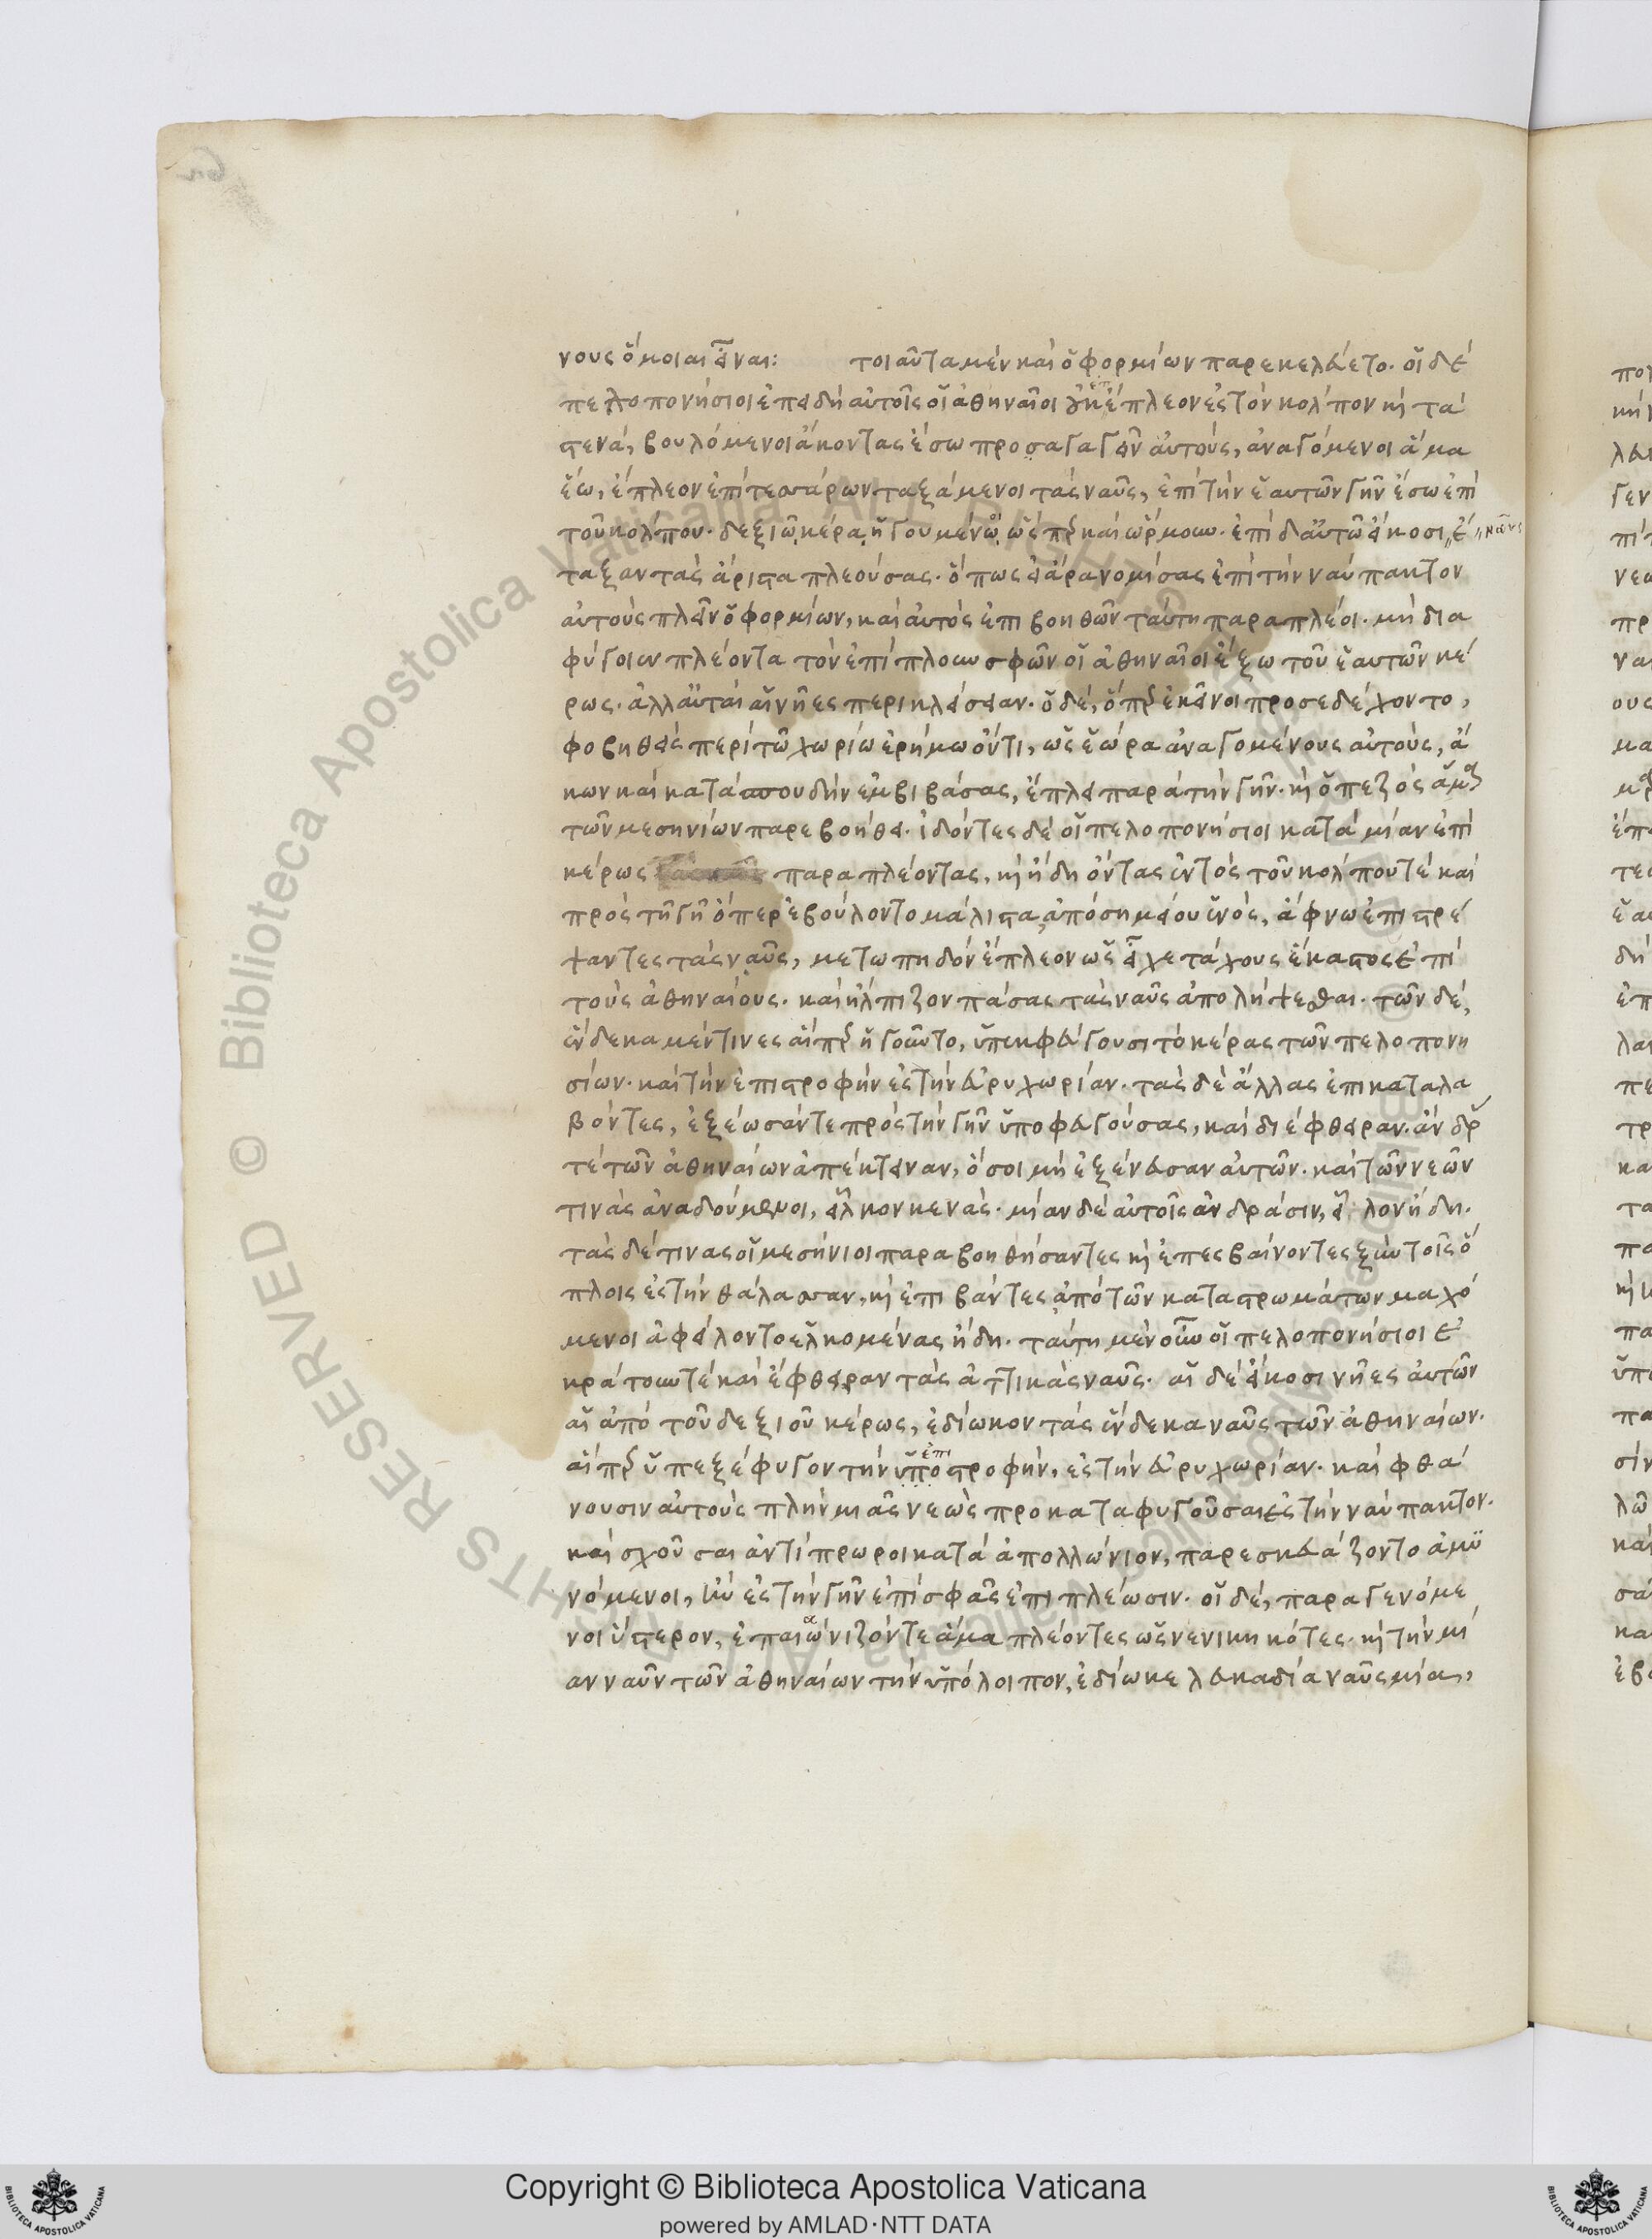 νους ὅμοιαι εἶναι: τοιαῦτα μὲν καὶ ὁ φορμίων παρεκελεύετο. οἱ δὲ
πελοπονήσιοι ἐπειδὴ αὐτοῖς οἱ ἀθηναῖοι οὐκ ἐπέπλεον ἐς τὸν κόλπον κ τὰ
στενά, βουλόμενοι ἄκοντας ἔσω προσαγαγεῖν αὐτούς, ἀναγόμενοι ἅμα
ἕω, ἔπλεον ἐπὶ τεσσάρων ταξάμενοι τὰς ναῦς, ἐπὶ τὴν ἑαυτῶν γῆν ἔσω ἐπὶ
τοῦ κόλπου. δεξιῶ κέρα ἡγουμένω, ὥσπερ καὶ ὥρμουν. ἐπὶ δ' αὐτῶ εἴκοσι ἔ ναῦς
ταξαν τὰς ἄριστα πλεούσας. ὅπως εἰ ἄρα νομίσας ἐπὶ τὴν ναύπακτον
αὐτοὺς πλεῖν ὁ φορμίων, καὶ αὐτὸς ἐπιβοηθῶν ταύτη παραπλέοι. μὴ δια
φύγοιεν πλέοντα τὸν ἐπίπλουν σφῶν οἱ ἀθηναῖοι ἔξω τοῦ ἑαυτῶν κέ
ρως. ἀλλ' αὗται αἱ νῆες περικλείσειαν. ὁ δέ, ὅπερ ἐκεῖνοι προσεδέχοντο,
φοβηθεὶς περὶ τῶ χωρίω ἐρήμω ὄντι, ὡς ἑώρα ἀναγομένους αὐτούς, ἄ
κων καὶ κατὰ σπουδὴν ἐμβιβάσας, ἔπλει παρὰ τὴν γῆν. κ ὁ πεζὸς ἅμα
τῶν μεσηνίων παρεβοήθει. ἰδόντες δὲ οἱ πελοπονήσιοι κατὰ μίαν ἐπὶ
κέρως παραπλέοντας, κ ἤδη ὄντας ἐντὸς τοῦ κόλπου τὲ καὶ
πρὸς τῆ γῆ ὅπερ ἐβούλοντο μάλιστα, ἀπὸ σημείου ἑνός, ἄφνω ἐπιστρέ
ψαντες τὰς ναῦς, μετωπηδὸν ἔπλεον ὡς εἶχε τάχους ἕκαστος ἐπὶ
τοὺς ἀθηναίους. καὶ ἤλπιζον πάσας τὰς ναῦς ἀπολήψεσθαι. τῶν δέ,
ἕνδεκα μέν τινες αἵπερ ἡγοῦντο, ὑπεκφεύγουσι τὸ κέρας τῶν πελοπονη
σίων. καὶ τὴν ἐπιστροφὴν ἐς τὴν εὐρυχωρίαν. τὰς δὲ ἄλλας ἐπικαταλα
βόντες, ἐξέωσάν τε πρὸς τὴν γῆν ὑποφευγούσας, καὶ διέφθειραν. ἄνδρ
τὲ τῶν ἀθηναίων ἀπέκτειναν, ὅσοι μὴ ἐξένευσαν αὐτῶν. καὶ τῶν νεῶν
τινὰς ἀναδούμενοι, εἷλκον κενάς. μίαν δὲ αὐτοῖς ἀνδράσιν, εἷλον ἤδη.
τὰς δέ τινας οἱ μεσήνιοι παραβοηθήσαντες κ ἐπεσβαίνοντες ξὺν τοῖς ὅ
πλοις ἐς τὴν θάλασσαν, κ ἐπιβάντες ἀπὸ τῶν καταστρωμάτων μαχό
μενοι ἀφείλοντο ἑλκομένας ἤδη. ταύτη μὲν οὖν οἱ πελοπονήσιοι ἐ
κράτουν τὲ καὶ ἔφθειραν τὰς ἀττικὰς ναῦς. αἱ δὲ εἴκοσι νῆες αὐτῶν
αἱ ἀπὸ τοῦ δεξιοῦ κέρως, ἐδίωκον τὰς ἕνδεκα ναῦς τῶν ἀθηναίων.
αἵπερ ὑπεξέφυγον τὴν ὑποἐπιστροφήν, ἐς τὴν εὐρυχωρίαν. καὶ φθά
νουσιν αὐτοὺς πλὴν μιᾶς νεὼς προκαταφυγοῦσαι ἐς τὴν ναύπακτον.
καὶ σχοῦσαι ἀντίπρωροι κατὰ ἀπολλώνιον, παρεσκευάζοντο ἀμϋ
νόμενοι, ἢν ἐς τὴν γῆν ἐπὶ σφᾶς ἐπιπλέωσιν. οἱ δέ, παραγενόμε
νοι ὕστερον, ἐπαιώνιζόν τε ἅμα πλέοντες ὡς νενικηκότες. κ τὴν μί
αν ναῦν τῶν ἀθηναίων τὴν ὑπόλοιπον, ἐδίωκε λευκαδία ναῦς μία,
Copyright © Biblioteca Apostolica Vaticana
powered by AMLAD·NTT DATA